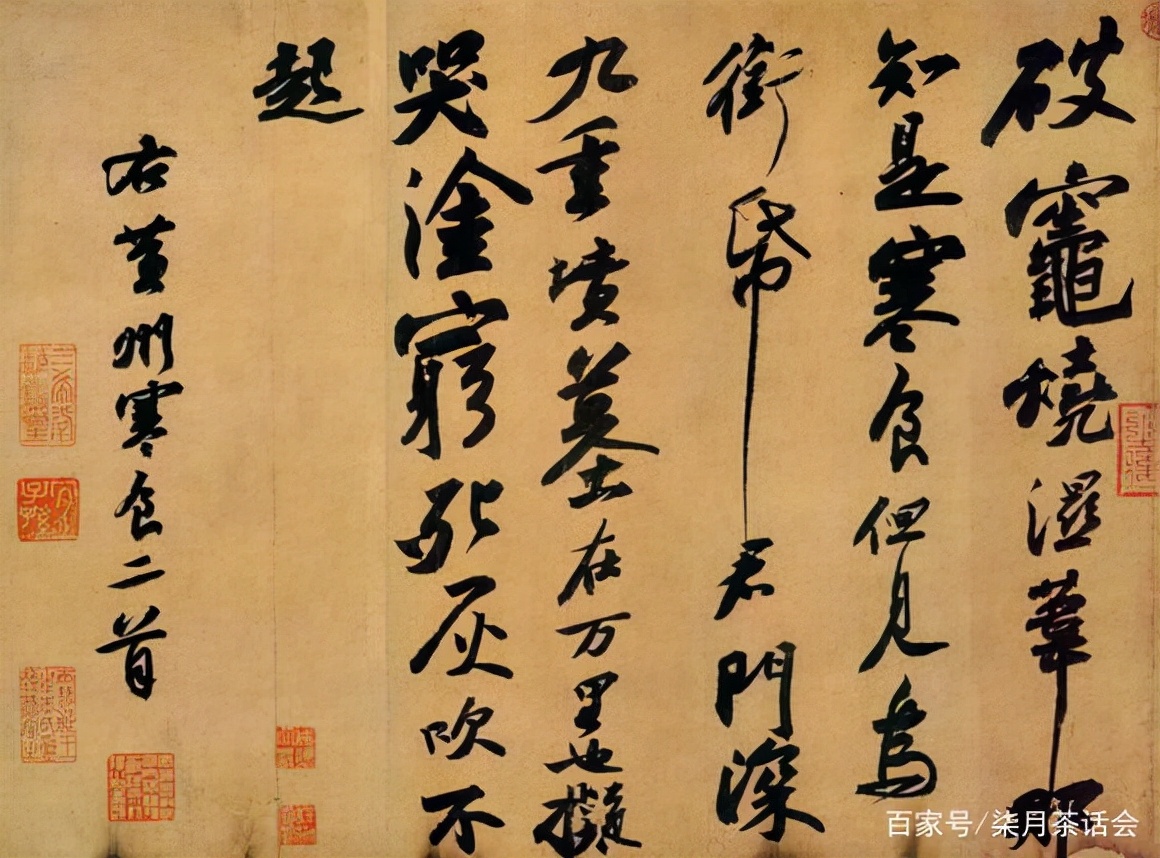 破竈燒濕葦那
知是寒食但見烏
銜帋君門深
九重墳墓在万里也擬
哭塗窮死灰吹不
起
右黃州寒食二首
百家号/柒月茶话会